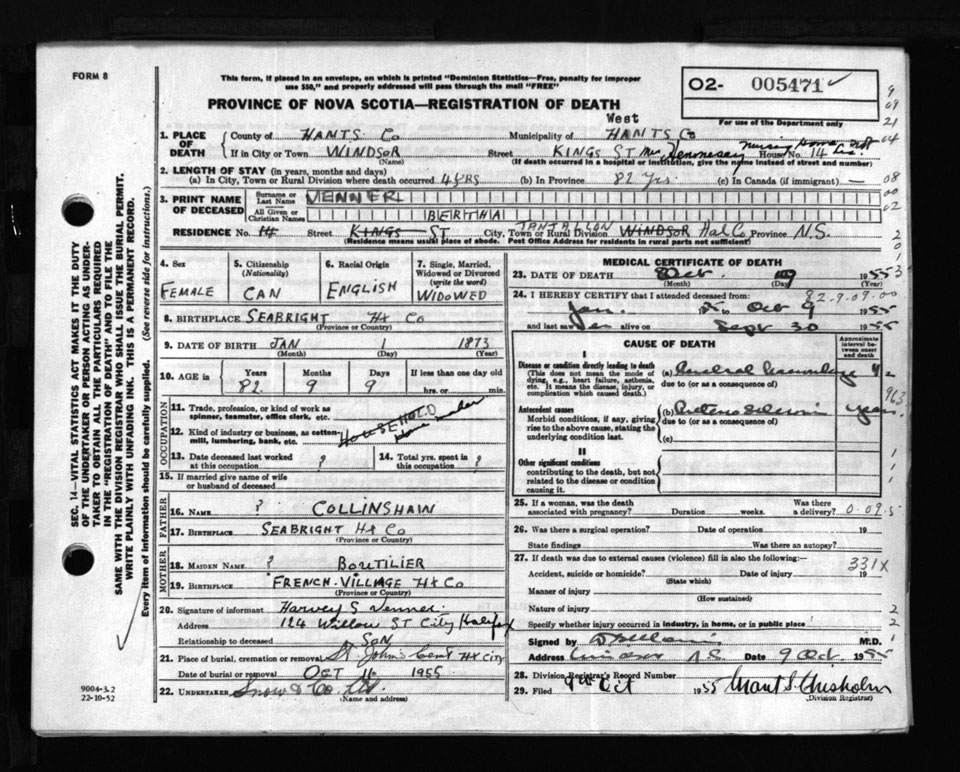 FORM 8
This form, if placed in an envelope, on which is printed "Dominion Statistics—Free, penalty for improper
use $50," and properly addressed will pass through the mail "FREE"
O2- 005471 ✓
For use of the Department only
PROVINCE OF NOVA SCOTIA—REGISTRATION OF DEATH
West
1. PLACE OF DEATH
County of HANTS Co Municipality of HANTS Co
If in City or Town WINDSOR (Name) Street KINGS ST Mrs Hennessey Nursing Home House No. 14
(If death occurred in a hospital or institution, give the name instead of street and number)
2. LENGTH OF STAY (in years, months and days)
(a) In City, Town or Rural Division where death occurred 4 YRS (b) In Province 82 Yrs. (c) In Canada (if immigrant) —
3. PRINT NAME OF DECEASED
Surname or Last Name VENNER
All Given or Christian Names BERTHA
TANTALLON
RESIDENCE No. 14 Street KINGS ST City, Town or Rural Division WINDSOR Hal Co Province N.S.
(Residence means usual place of abode. Post Office Address for residents in rural parts not sufficient)
4. Sex FEMALE
5. Citizenship (Nationality) CAN
6. Racial Origin ENGLISH
7. Single, Married, Widowed or Divorced (write the word) WIDOWED
8. BIRTHPLACE SEABRIGHT Hx Co
(Province or Country)
9. DATE OF BIRTH JAN 1 1873
(Month) (Day) (Year)
10. AGE in Years 82 Months 9 Days 9 If less than one day old
hrs. or min.
OCCUPATION
11. Trade, profession, or kind of work as
spinner, teamster, office clerk, etc.
12. Kind of industry or business, as cotton-
mill, lumbering, bank, etc.
HOUSEHOLD
Home maker
13. Date deceased last worked
at this occupation ?
14. Total yrs. spent in
this occupation ?
15. If married give name of wife
or husband of deceased
FATHER
16. Name ? COLLINSHAW
17. BIRTHPLACE SEABRIGHT Hx Co
(Province or Country)
MOTHER
18. MAIDEN NAME ? BOUTILIER
19. BIRTHPLACE FRENCH VILLAGE Hx Co
(Province or Country)
20. Signature of informant Harvey S Venner
Address 124 Willow ST City Halifax
Relationship to deceased SON
21. Place of burial, cremation or removal St John's Cem't Hx City
Date of burial or removal OCT 11 1955
22. UNDERTAKER Snow & Co. Ltd.
(Name and address)
MEDICAL CERTIFICATE OF DEATH
23. DATE OF DEATH Oct. 9 1955
(Month) (Day) (Year)
24. I HEREBY CERTIFY that I attended deceased from: 82-9-09-00
Jan. 1955 to Oct 9 1955
and last saw her alive on Sept 30 1955
CAUSE OF DEATH
Approximate interval between onset and death
I
Disease or condition directly leading to death
(This does not mean the mode of dying, e.g., heart failure, asthenia, etc. It means the disease, injury, or complication which caused death.)
(a) Cerebral Haemorrhage
due to (or as a consequence of)
Antecedent causes
Morbid conditions, if any, giving rise to the above cause, stating the underlying condition last.
(b) Arteriosclerosis years
due to (or as a consequence of)
(c)
II
Other significant conditions
contributing to the death, but not related to the disease or condition causing it.
25. If a woman, was the death associated with pregnancy? Duration weeks. Was there a delivery?
26. Was there a surgical operation? Date of operation 19
State findings Was there an autopsy?
27. If death was due to external causes (violence) fill in also the following:— 331X
Accident, suicide or homicide? Date of injury 19
(State which)
Manner of injury
(How sustained)
Nature of injury
Specify whether injury occurred in industry, in home, or in public place
Signed by M.D.
Address Windsor N.S. Date 9 Oct. 1955
28. Division Registrar's Record Number
29. Filed 9th Oct 1955 Grant S. Chisholm
(Division Registrar)
SEC. 14—VITAL STATISTICS ACT MAKES IT THE DUTY
OF THE UNDERTAKER OR PERSON ACTING AS UNDER-
TAKER TO OBTAIN ALL THE PARTICULARS REQUIRED
IN THE "REGISTRATION OF DEATH" AND TO FILE THE
SAME WITH THE DIVISION REGISTRAR WHO SHALL ISSUE THE BURIAL PERMIT.
WRITE PLAINLY WITH UNFADING INK. THIS IS A PERMANENT RECORD.
Every item of information should be carefully supplied. (See reverse side for instructions.)
9004-3.2
22-10-52